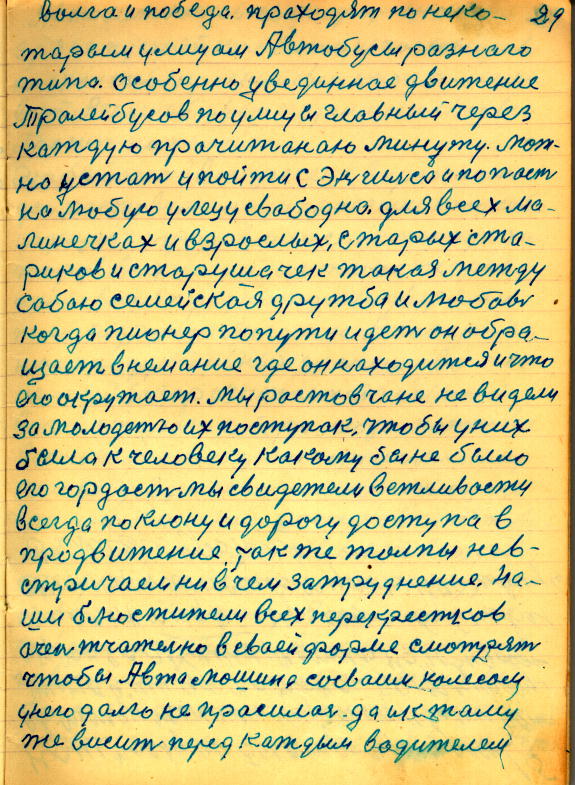 волга и победа. праходят по неко- 29
тарым улицам Автобусы разнаго
типа. особенно увединное движение
Тралейбусов по улицы главный через
каждую прачитанаю минуту. мож-
но устат и пойти с Энгилса и попаст
на любую улецу свабодна. для всех ма-
линечках и взрослых, старых ста-
риков и старушачек такая между
сабаю семейская дружба и любавь
когда пионер попути идет он обра-
щает внемание где он находится и что
его окружает. мы растовчане не видели
за молодежю их поступак, чтобы у них
была к человеку какому бы не было
его гордасть мы свидетели вежливости
всегда поклону и дорогу доступа в
продвижение, так же толпы нев-
стричаем ни в чем затруднение. На-
ши блюстители всех перекрестков
очен тчателно в сваей форме смотрят
чтобы Автамошина соеваим колесом
у него далго не прасилас. да и к таму
же висит перед каждым водителем